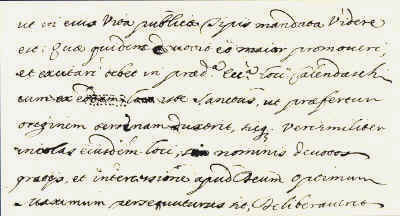 ut in eius Vita publicis typis mandata Videre
est: Quæ quidem devotio eò maior promoveri,
et excitari debet in præd.ª loci
cum ex Sanctus, ut præfertur
originem duxerit, sicq; Verisimiliter
incolas eiusdem loci, nominis devotos
gratos, et intercessione apud Deum optimum
maximum persequuturus sit, deliberavit